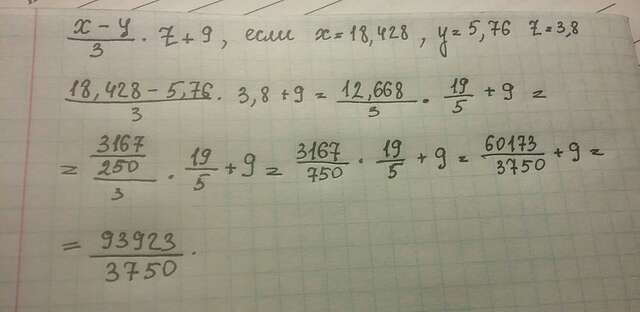 (x - y)/3 · z + 9, если x = 18,428, y = 5,76 z = 3,8
(18,428 - 5,76)/3 · 3,8 + 9 = 12,668/3 · 19/5 + 9 =
= (3167/250)/3 · 19/5 + 9 = 3167/750 · 19/5 + 9 = 60173/3750 + 9 =
= 93923/3750.